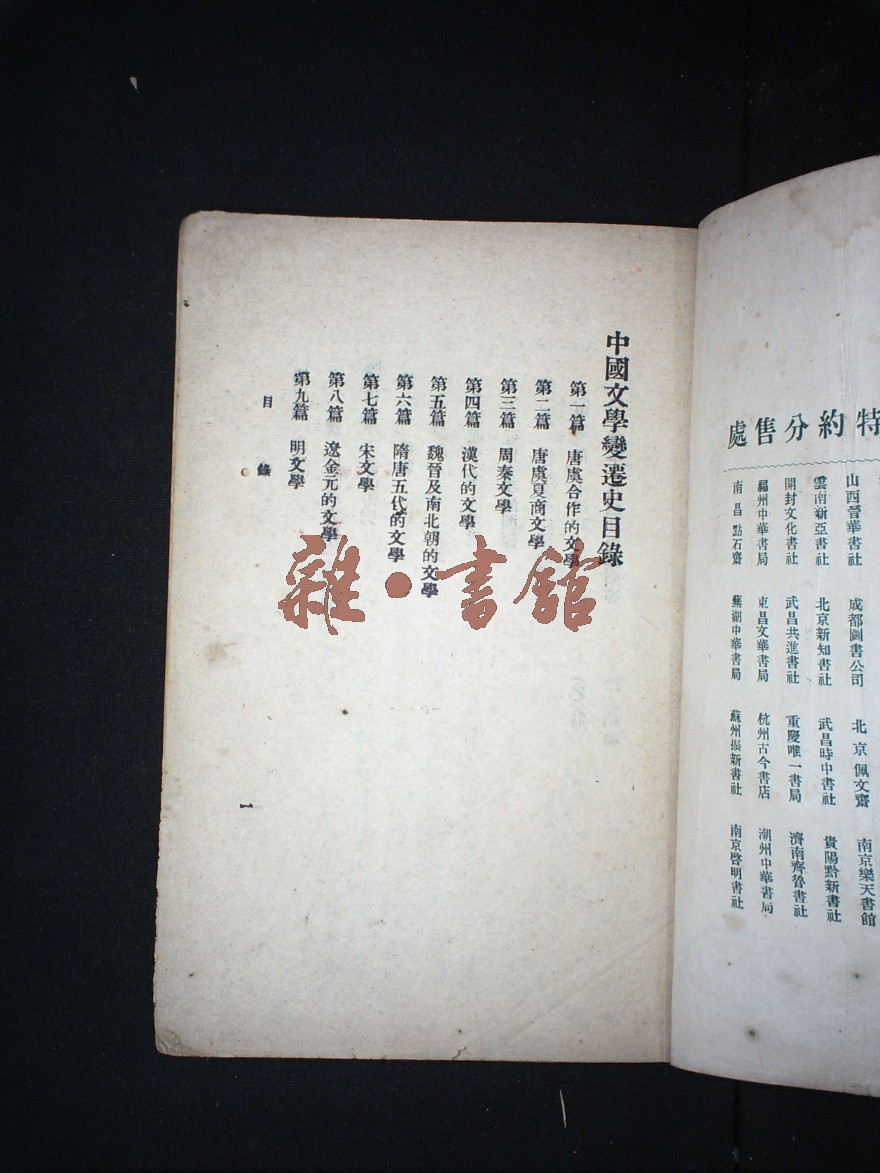 特約分售處
山西晉華書社 成都圖書公司 北京佩文齋 南京樂天書館
雲南新亞書社 北京新知書社 武昌時中書社 貴陽黔新書社
開封文化書社 武昌共進書社 重慶唯一書局 濟南齊魯書社
福州中華書局 東昌文華書局 杭州古今書店 潮州中華書局
南昌點石齋 蕪湖中華書局 蘇州振新書社 南京啓明書社
中國文學變遷史目錄
第一篇 唐虞合作的文學
第二篇 唐虞夏商文學
第三篇 周秦文學
第四篇 漢代的文學
第五篇 魏晉及南北朝的文學
第六篇 隋唐五代的文學
第七篇 宋文學
第八篇 遼金元的文學
第九篇 明文學
目錄 一
雜·書館